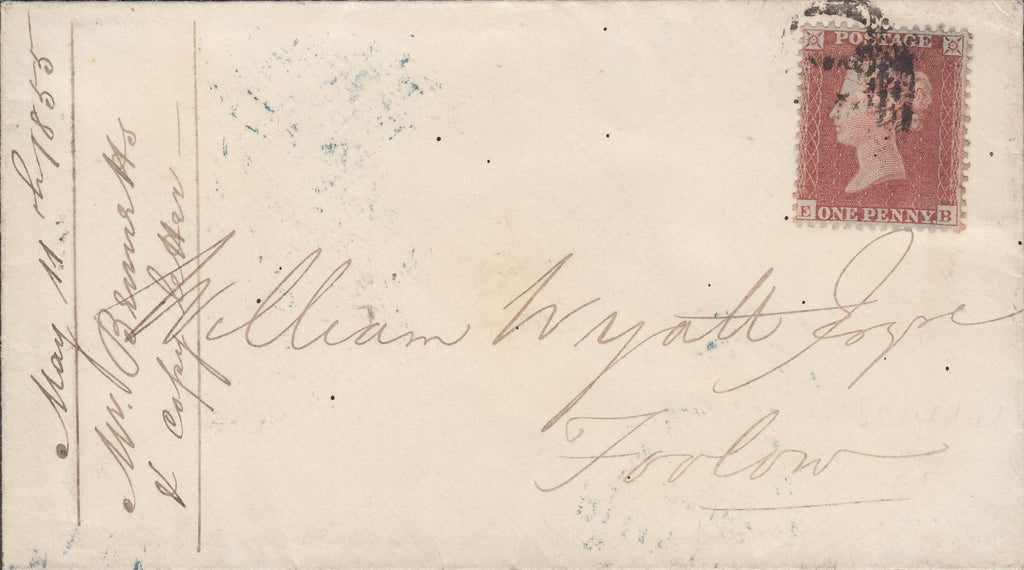 POSTAGE
E ONE PENNY B
William Wyatt Esqre
Foolow
May 11th 1855
Mr. Bennetts
& copy letter